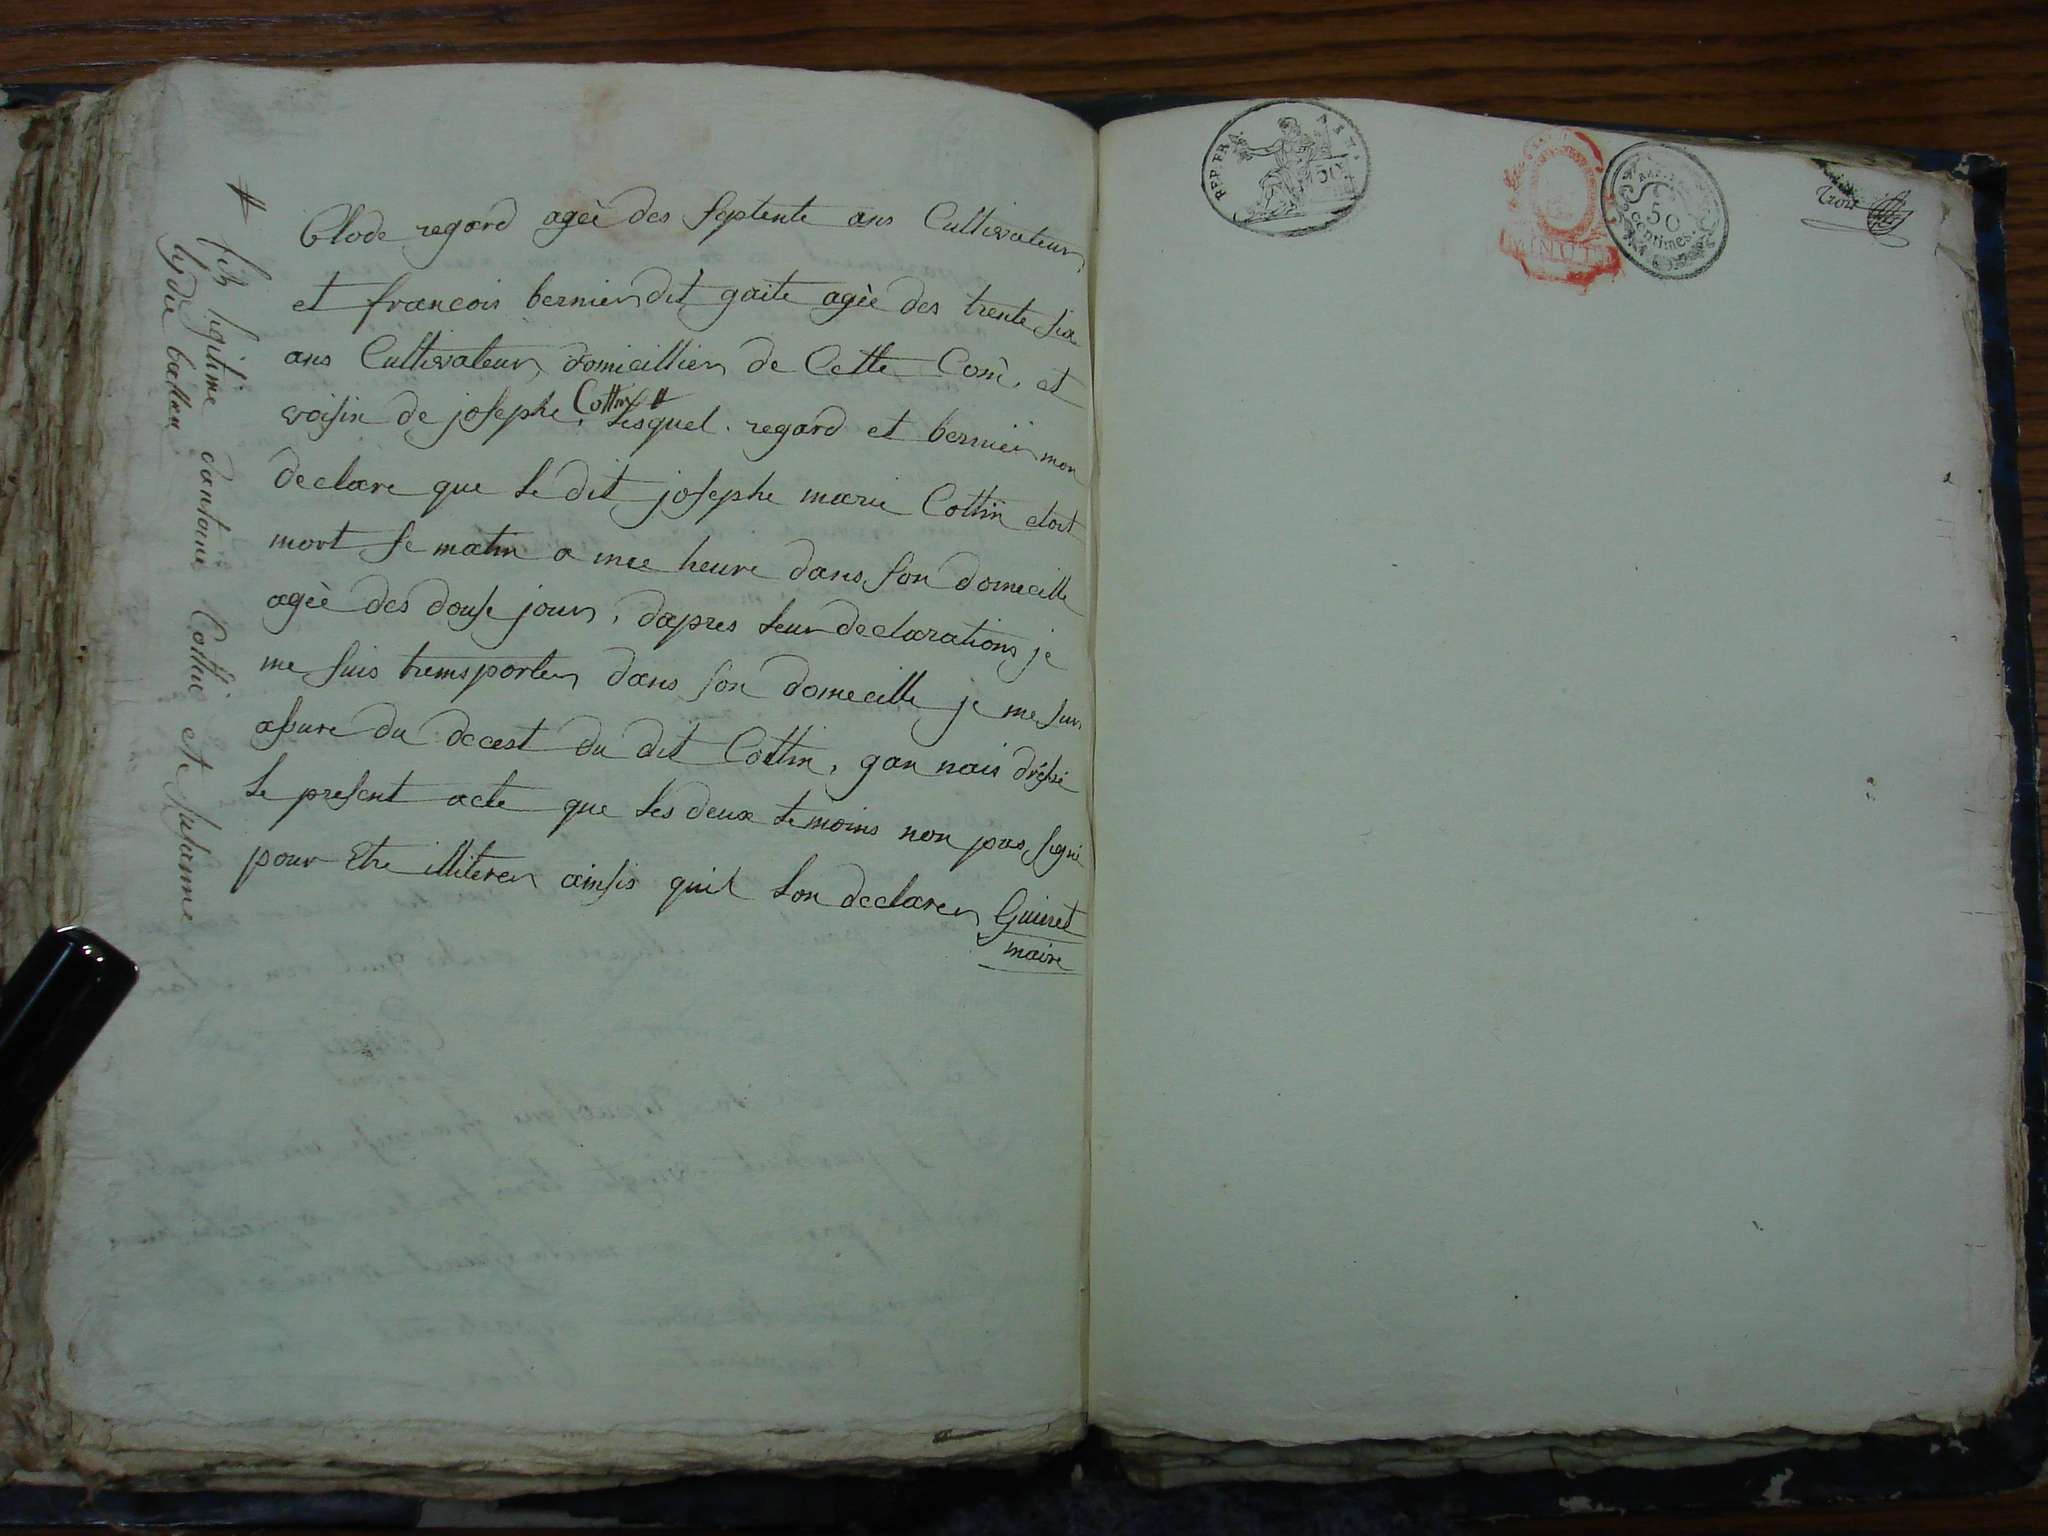 Clode regard agèe des septente ans Cultivateur
et francois bernier dit gaite agèe des trente six
ans Cultivateur domicillier de Cette Com. et
voisin de josephe Cottin # Lesquel. regard et bernier mon
declare que le dit josephe marie Cottin etoit
mort se matin a une heure dans son domicille
agèe des douse jour, dapres leur declarations je
me suis trensporter dans son domecille je me suis
assure du decest du dit Cottin, gan nais dressé
le present acte que les deux temoins non pas signé
pour Etre illiterer ainsis quil lon declarer Guinet
maire
# fils legitime dantoine Cottin et Susanne
lydie
REP. FRA.
50
MINUTE
50
Centimes.
trois